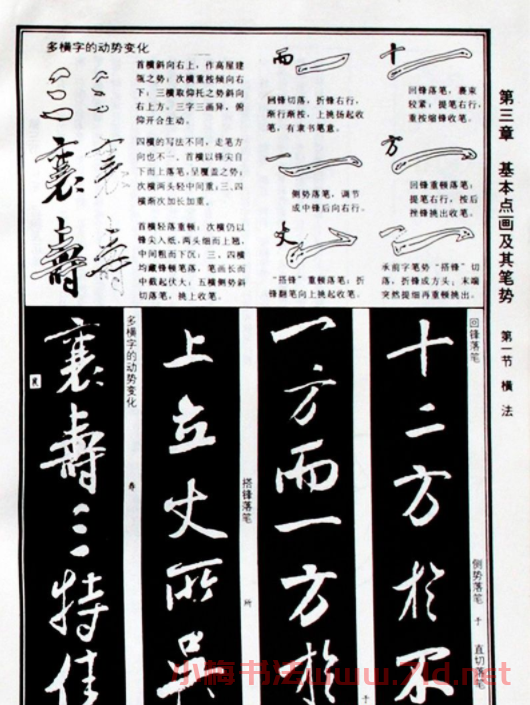 第三章 基本点画及其笔势 第一节 横法
十
回锋落笔，裹束
轻紧；提笔右行，
重按缩锋收笔。
方
回锋重顿落笔；
提笔右行，按后
挫锋挑出收笔。
承前字笔势“搭锋”切
落，折锋成方头；末端
突然提细再重顿挑出。
而
回锋切落，折锋右行，
渐行渐按，上挑扬起收
笔，有隶书笔意。
一
侧势落笔，调节
成中锋后向右行。
丈
“搭锋”重顿落笔；折
锋翻笔向上挑起收笔。
多横字的动势变化
首横斜向右上，作高屋建
瓴之势；次横重按倾向右
下；三横取仰托之势斜向
右上方。三字三画异，俯
仰开合生动。
三
襄
四横的写法不同，走笔方
向也不一，首横以锋尖自
下而上落笔，呈覆盖之势；
次横两头轻中间重；三、四
横渐次加长加重。
壽
首横轻落重顿；次横仍以
锋尖入纸，两头细而上翘，
中间粗而下沉；三、四横
均藏锋顿笔落，笔画长而
中截起伏大；五横侧势斜
切落笔，挑上收笔。
回锋落笔
侧势落笔 于
直切落笔
十二方於不
一方而一方於
于
搭锋落笔
所
上立丈所吴
多横字的动势变化
寿
襄壽三特佳
襄
小梅书法www.7ld.net